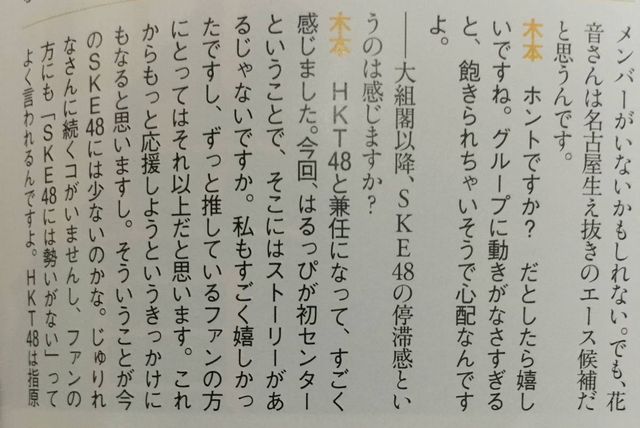 メンバーがいないかもしれない。でも、花
音さんは名古屋生え抜きのエース候補だ
と思うんです。
木本　ホントですか？　だとしたら嬉し
いですね。グループに動きがなさすぎる
と、飽きられちゃいそうで心配なんです
よ。
――大組閣以降、SKE48の停滞感とい
うのは感じますか？
木本　HKT48と兼任になって、すごく
感じました。今回、はるっぴが初センター
ということで、そこにはストーリーがあ
るじゃないですか。私もすごく嬉しかっ
たですし、ずっと推しているファンの方
にとってはそれ以上だと思います。これ
からもっと応援しようというきっかけに
もなると思いますし。そういうことが今
のSKE48には少ないのかな。じゅりれ
なさんに続くコがいませんし、ファンの
方にも「SKE48には勢いがない」って
よく言われるんですよ。HKT48は指原